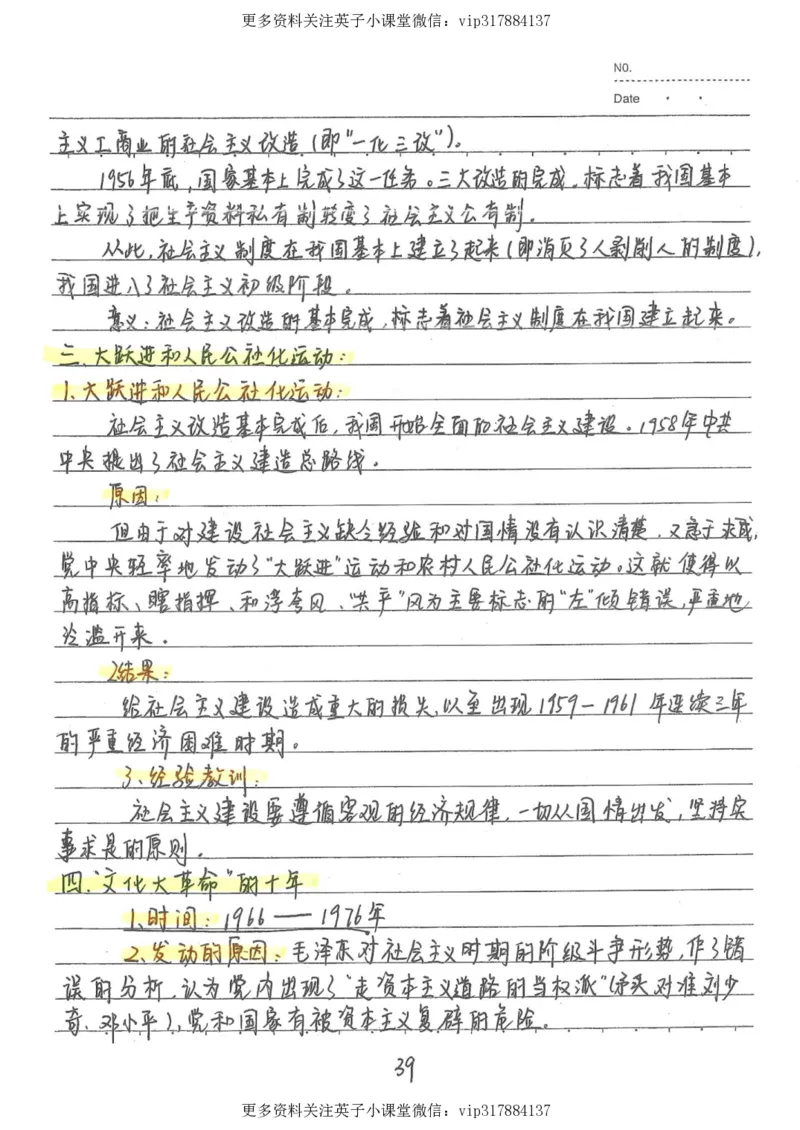 更多资料关注英子小课堂微信：vip317884137
NO.
Date
主义工商业的社会主义改造（即"一化三改"）。
1956年底，国家基本上完成了这一任务。三大改造的完成，标志着我国基本
上实现了把生产资料私有制转变了社会主义公有制。
从此，社会主义制度在我国基本上建立了起来（即消灭了人剥削人的制度），
我国进入了社会主义初级阶段。
意义：社会主义改造的基本完成，标志着社会主义制度在我国建立起来。
三、大跃进和人民公社化运动：
1、大跃进和人民公社化运动：
社会主义改造基本完成后，我国开始全面的社会主义建设。1958年中共
中央提出了社会主义建造总路线。
原因：
但由于对建设社会主义缺乏经验和对国情没有认识清楚，又急于求成，
党中央轻率地发动了"大跃进"运动和农村人民公社化运动。这就使得以
高指标、瞎指挥、和浮夸风、"共产"风为主要标志的"左"倾错误，严重地
泛滥开来。
2、结果：
给社会主义建设造成重大的损失，以至出现1959—1961年连续三年
的严重经济困难时期。
3、经验教训：
社会主义建设要遵循客观的经济规律，一切从国情出发，坚持实
事求是的原则。
四、"文化大革命"的十年
1、时间：1966——1976年
2、发动的原因：毛泽东对社会主义时期的阶级斗争形势，作了错
误的分析，认为党内出现了"走资本主义道路的当权派"（矛头对准刘少
奇、邓小平），党和国家有被资本主义复辟的危险。
39
更多资料关注英子小课堂微信：vip317884137